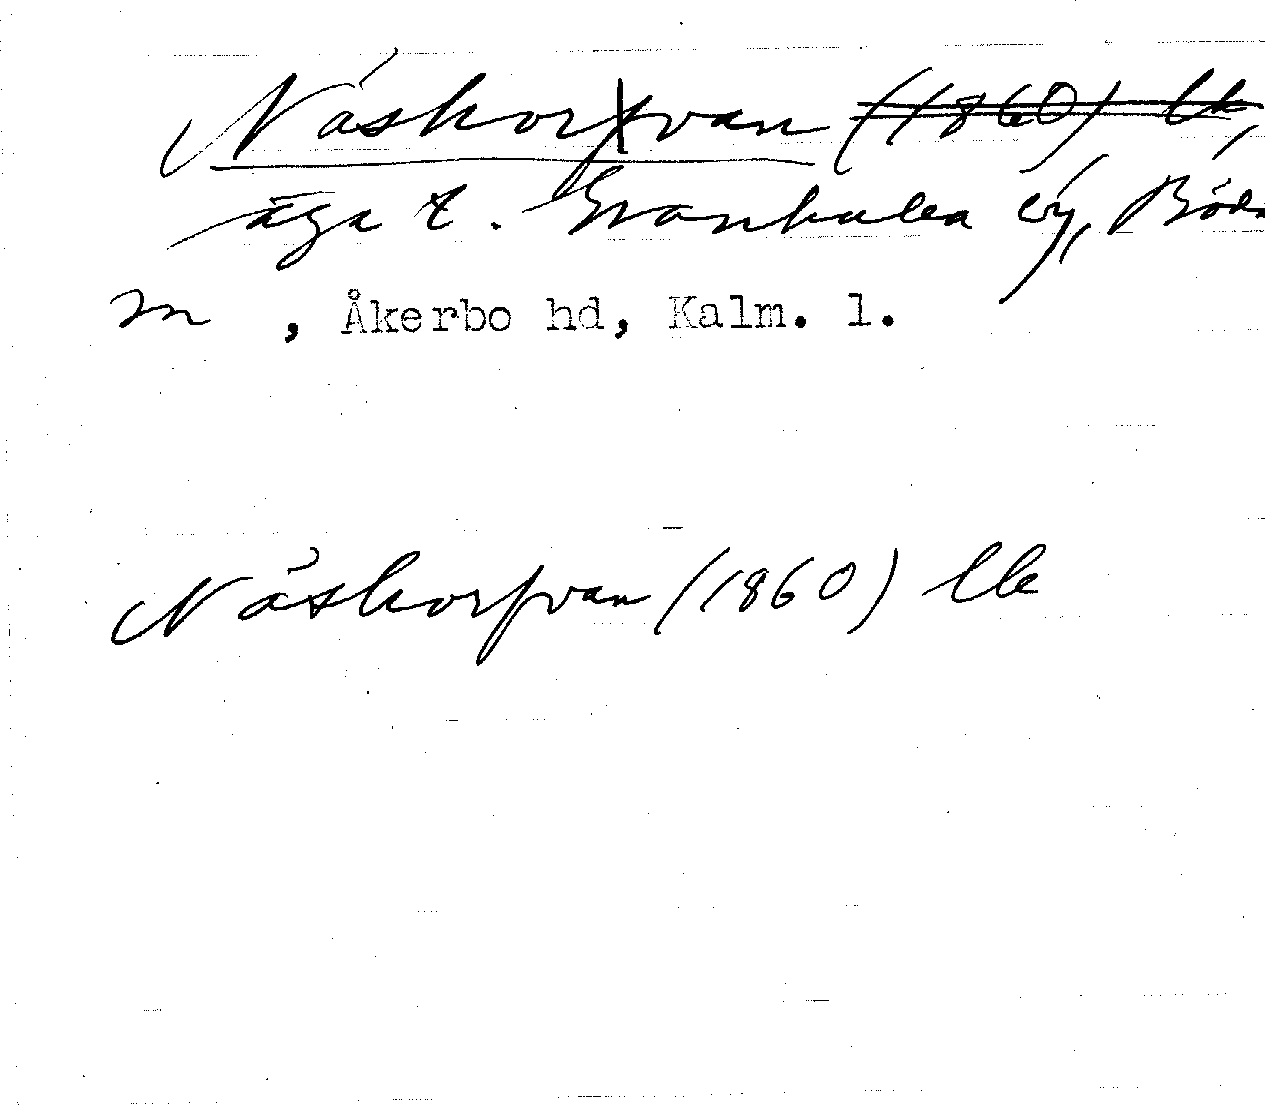 Näskorfvan (1860) lk,
äga t. Svankulla by, Böda
sn , Åkerbo hd, Kalm. l.
Näskorfvan (1860) lk